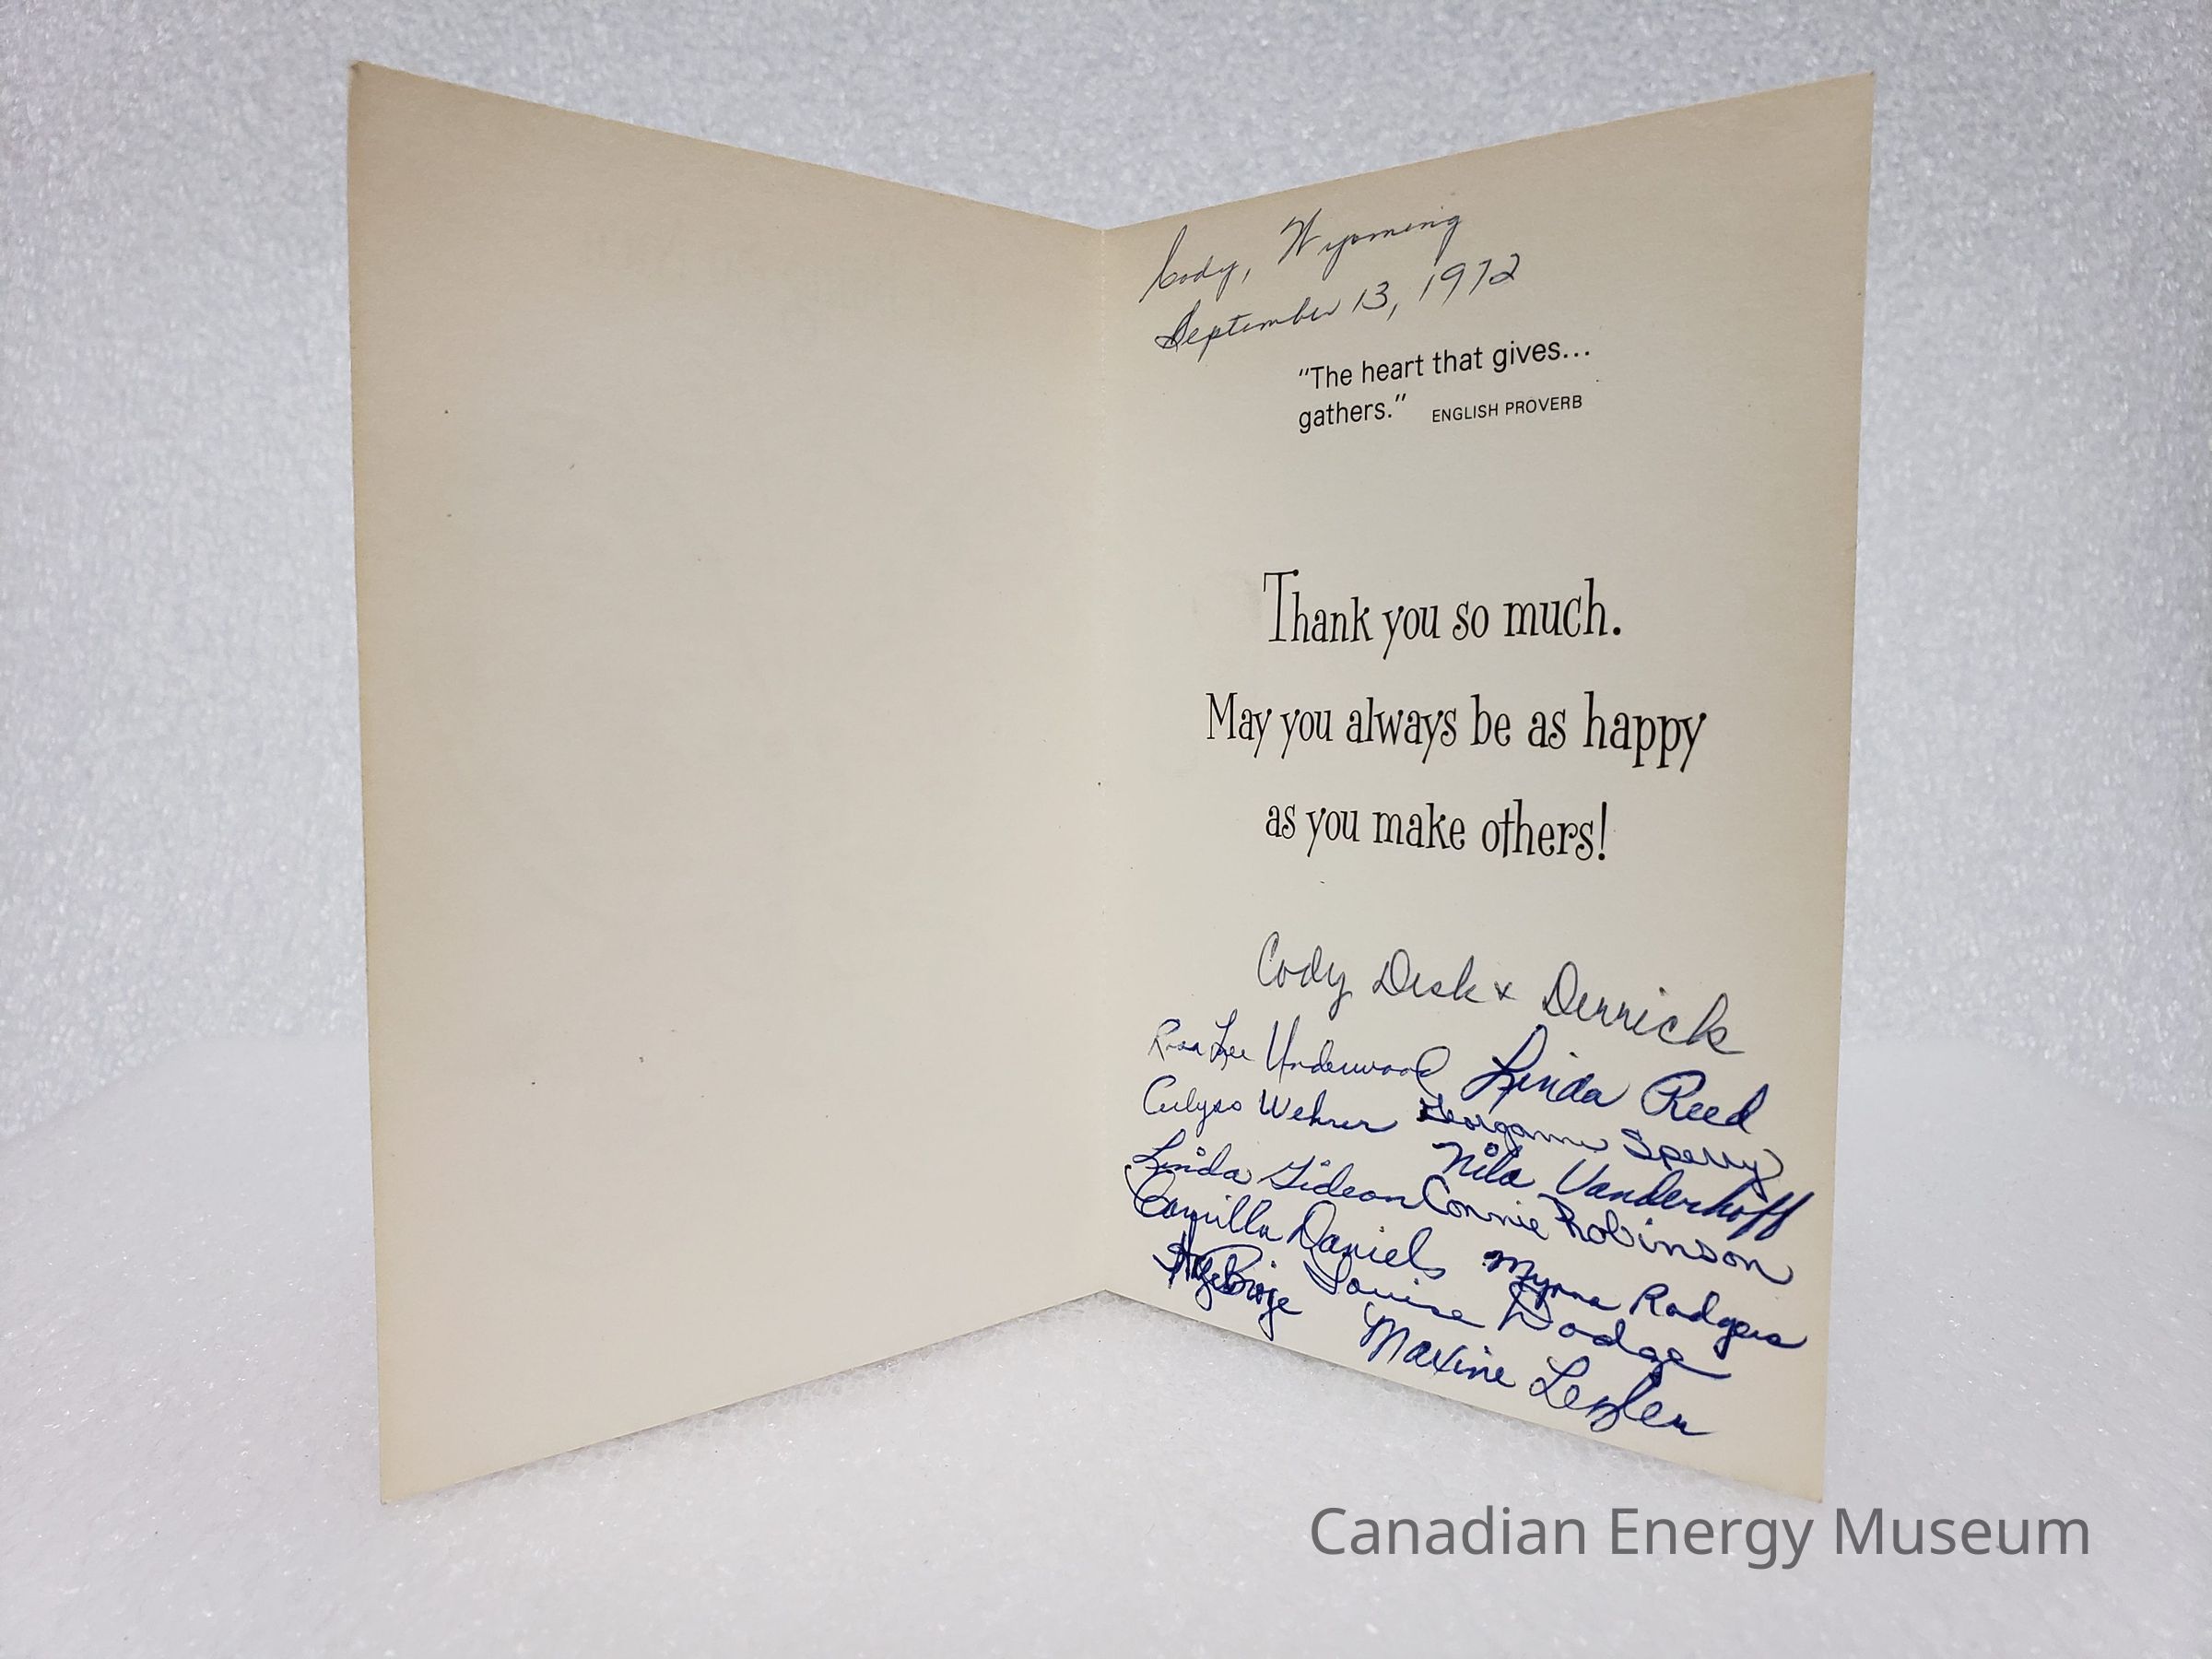 Cody, Wyoming
September 13, 1972
"The heart that gives...
gathers." ENGLISH PROVERB
Thank you so much.
May you always be as happy
as you make others!
Cody Desk & Derrick
Rosa Lee Underwood Linda Reed
Wehrer Sperry
Linda Gideon Nila Vanderhoff
Camilla Daniels Connie Robinson
Myrna Rodgers
Louise Dodge
Maxine
Canadian Energy Museum